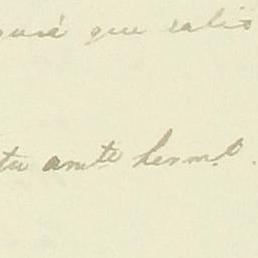 que salió
tu amte herm.o